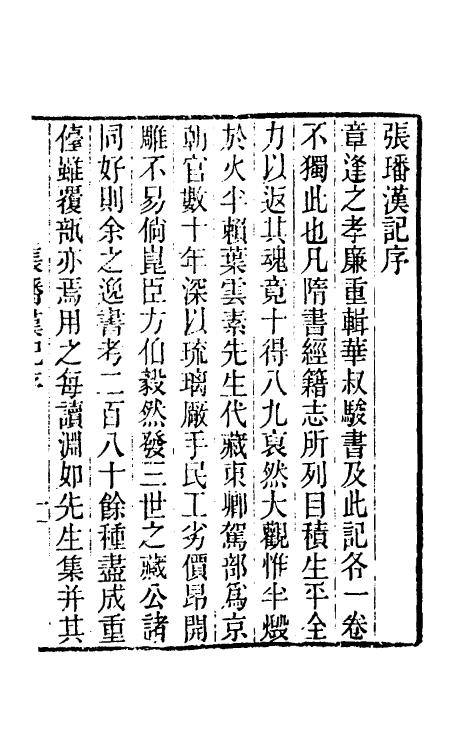 張璠漢記序
章逢之孝廉重輯華叔駿書及此記各一卷
不獨此也凡隋書經籍志所列目積生平全
力以返其魂竟十得八九裒然大觀惟半燬
於火半賴葉雲素先生代藏東卿駕部爲京
朝官數十年深以琉璃廠手民工劣價昂開
雕不易倘崑臣方伯毅然發三世之藏公諸
同好則余之逸書考二百八十餘種盡成重
儓雖覆瓿亦焉用之每讀淵如先生集并其
張璠漢記序
一